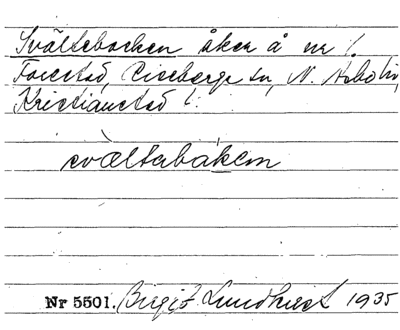 Svältebacken åker å nr 1.
Farstad, Riseberga sn, N. Åsbo hd,
Kristianstad l.
svæltabakən
Nr 5501. Birgit Lundkvist 1935